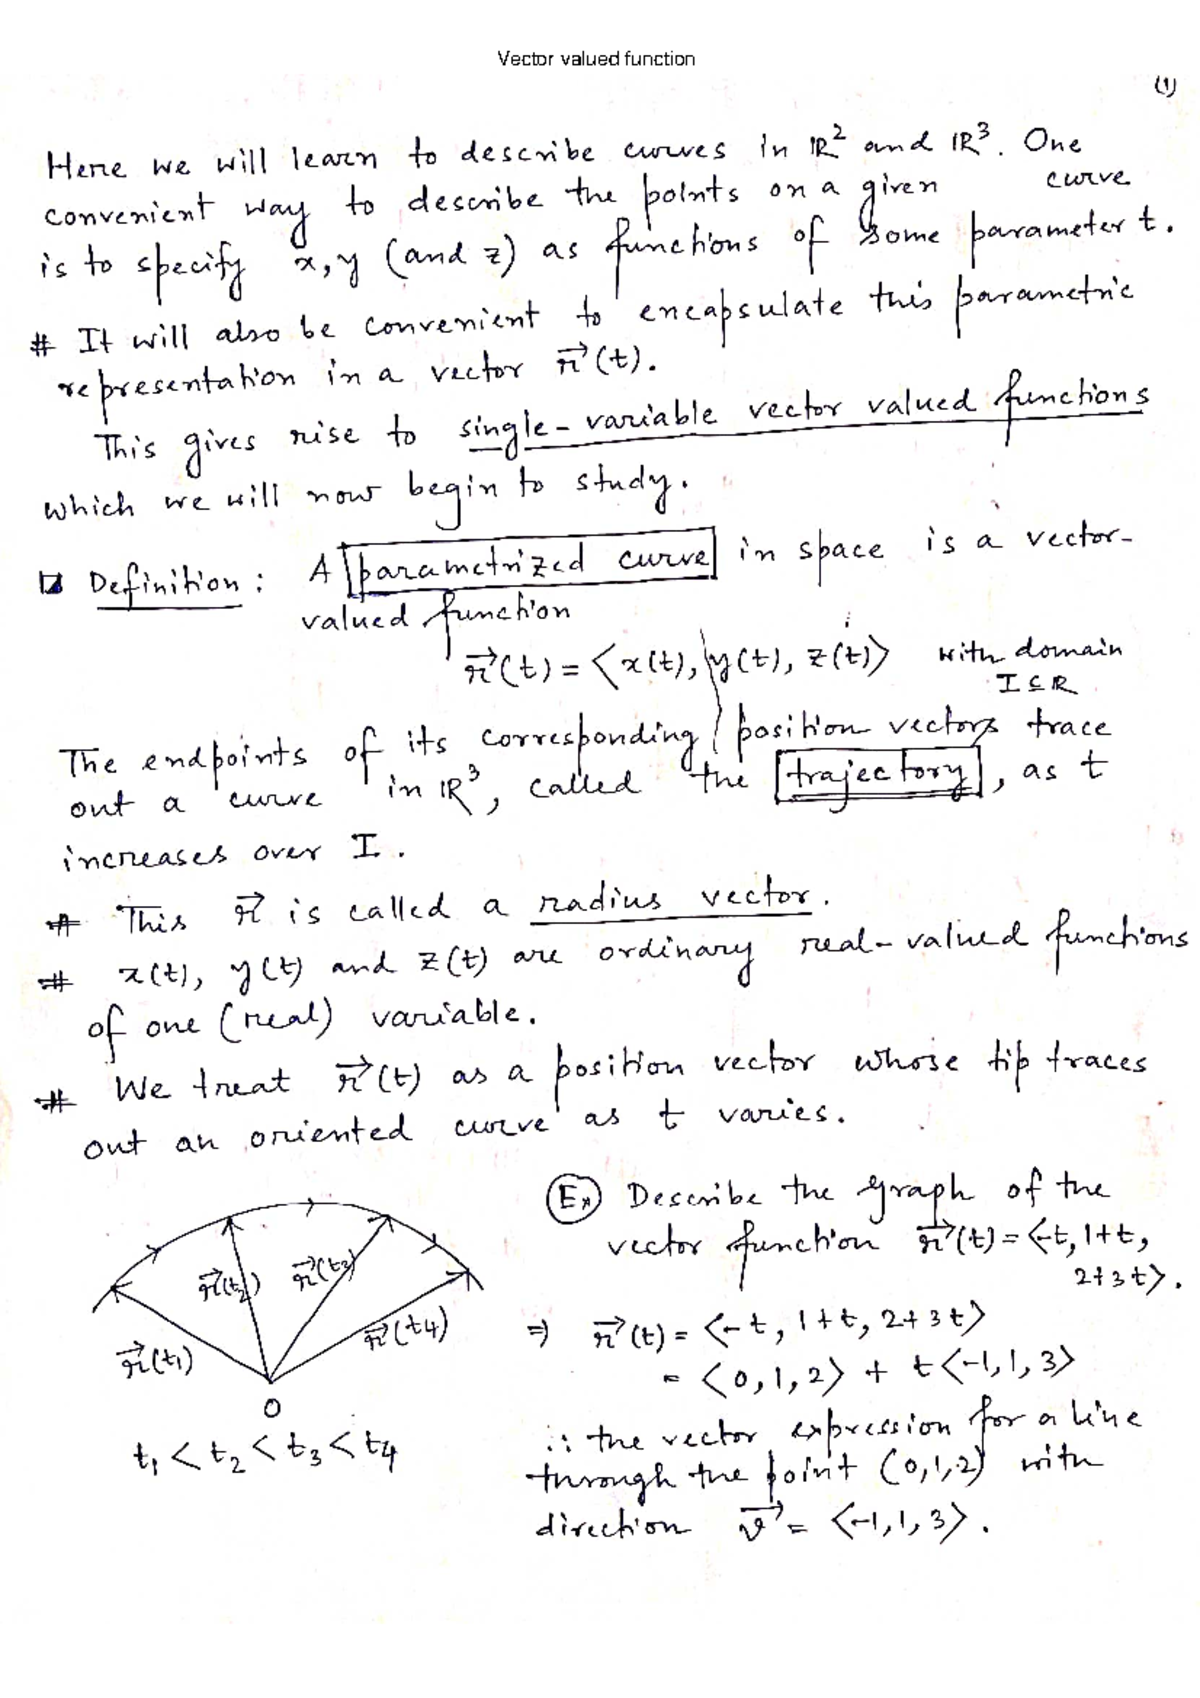 Vector valued function
(1)
Here we will learn to describe curves in ℝ² and ℝ³. One
convenient way to describe the points on a given curve
is to specify x, y (and z) as functions of some parameter t.
# It will also be convenient to encapsulate this parametric
representation in a vector r⃗(t).
This gives rise to single-variable vector valued functions
which we will now begin to study.
Definition: A parametrized curve in space is a vector-
valued function
r⃗(t) = ⟨x(t), y(t), z(t)⟩ with domain
I ⊆ R
The endpoints of its corresponding position vectors trace
out a curve in ℝ³, called the trajectory, as t
increases over I.
# This r⃗ is called a radius vector.
# x(t), y(t) and z(t) are ordinary real-valued functions
of one (real) variable.
# We treat r⃗(t) as a position vector whose tip traces
out an oriented curve as t varies.
r⃗(t₁)
r⃗(t₂)
r⃗(t₃)
r⃗(t4)
O
t₁ < t₂ < t₃ < t4
Ex Describe the graph of the
vector function r⃗(t) = ⟨-t, 1+t,
2+3t⟩.
⇒ r⃗(t) = ⟨-t, 1+t, 2+3t⟩
= ⟨0,1,2⟩ + t⟨-1,1,3⟩
∴ the vector expression for a line
through the point (0,1,2) with
direction v⃗ = ⟨-1,1,3⟩.